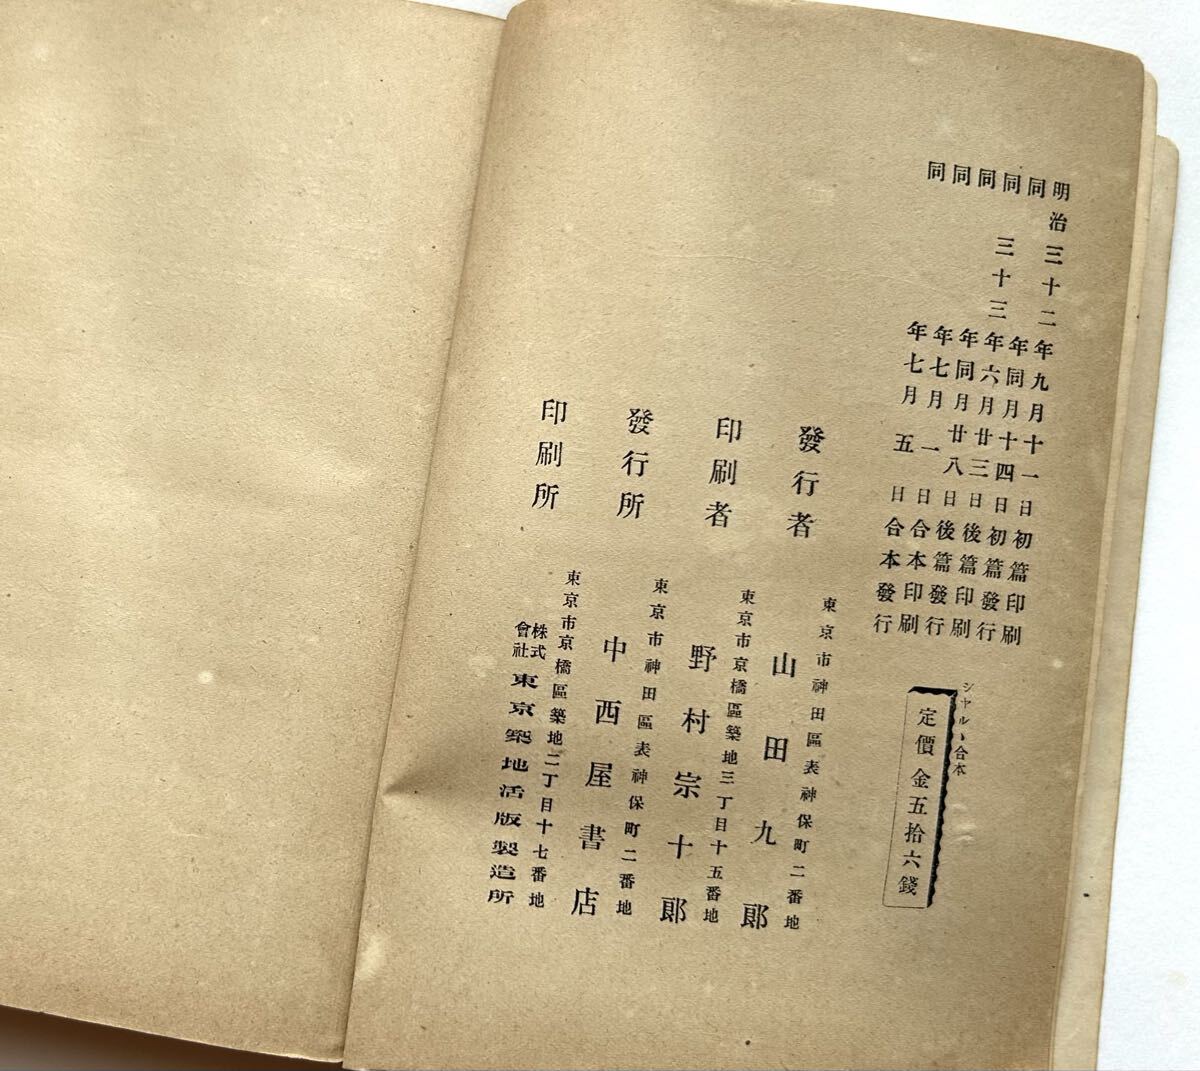 明治三十二年九月十一日初篇印刷
同年同月十四日初篇發行
同三十三年六月廿三日後篇印刷
同年同月廿八日後篇發行
同年七月一日合本印刷
同年七月五日合本發行
シヤルヽ合本
定價金五拾六錢
發行者
東京市神田區表神保町二番地
山田九郎
印刷者
東京市京橋區築地三丁目十五番地
野村宗十郎
發行所
東京市神田區表神保町二番地
中西屋書店
印刷所
東京市京橋區築地二丁目十七番地
株式會社東京築地活版製造所